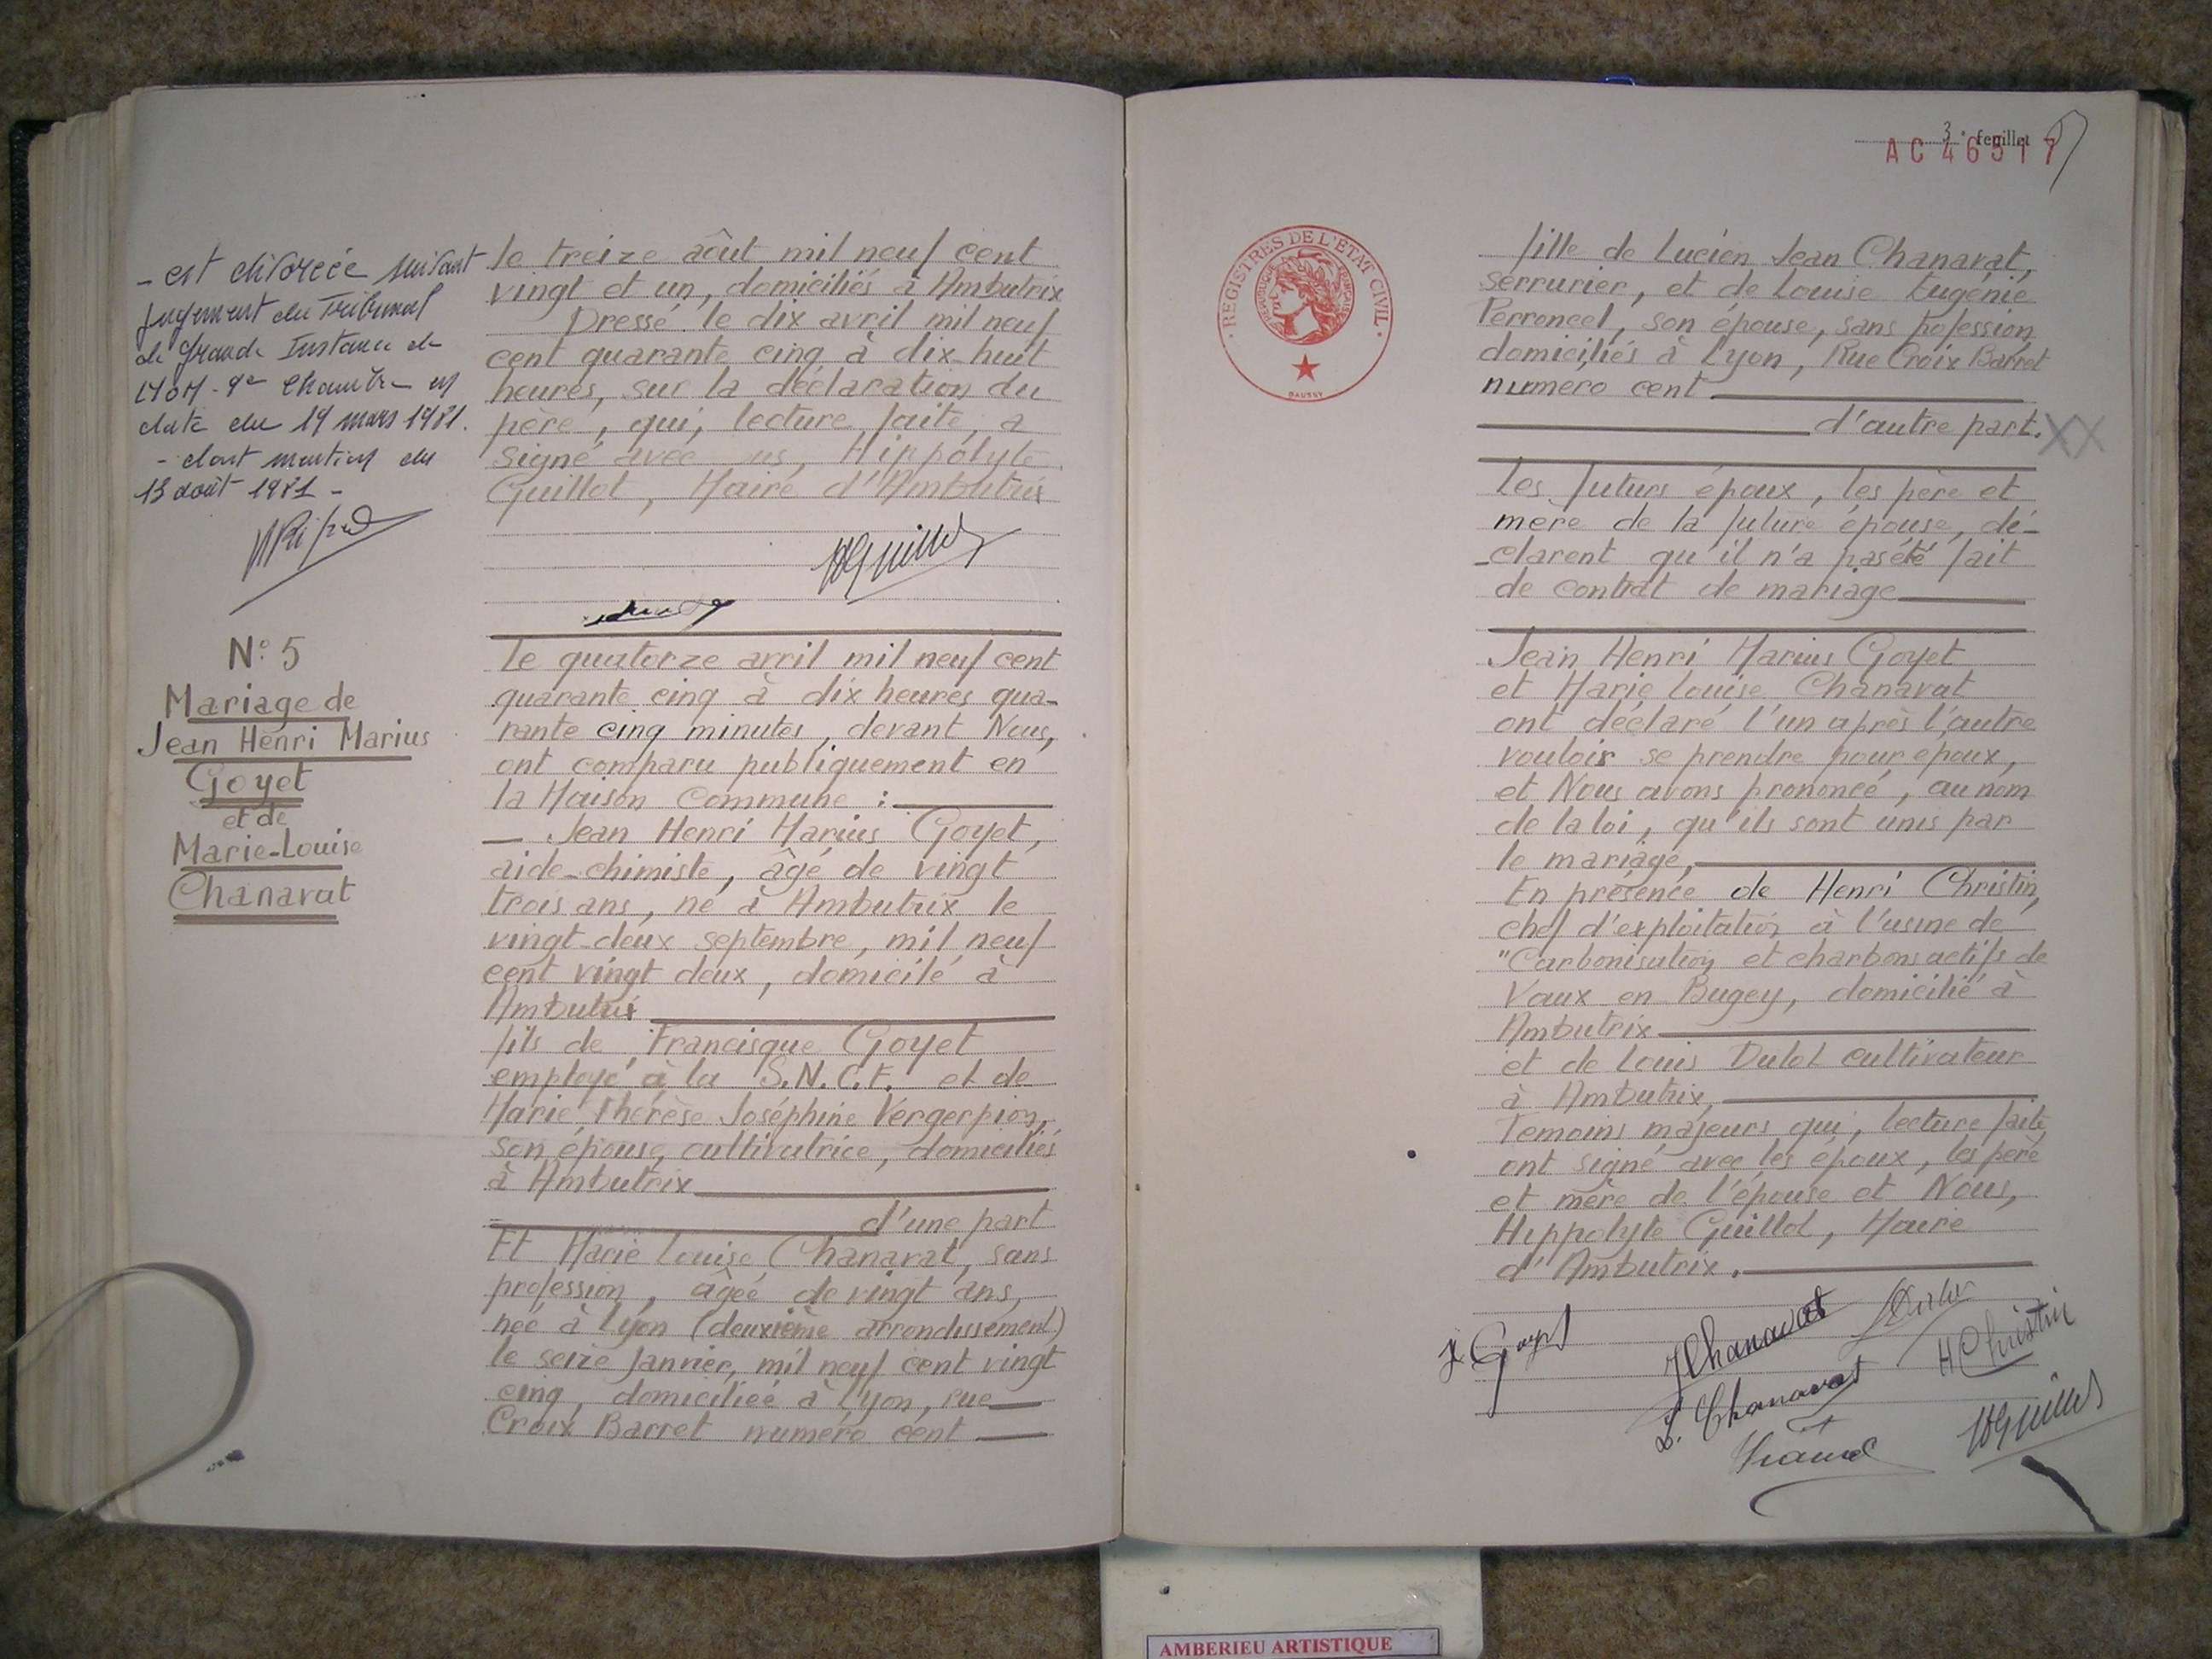 - est divorcée suivant
jugement du Tribunal
de Grande Instance de
LYON - 9e Chambre en
date du 19 mars 1981.
- dont mention du
13 août 1981 -
N° 5
Mariage de
Jean Henri Marius
Goyet
et de
Marie-Louise
Chanavat
le treize août mil neuf cent
vingt et un, domiciliés à Ambutrix
Dressé le dix avril mil neuf
cent quarante cinq à dix-huit
heures, sur la déclaration du
père, qui, lecture faite, a
signé avec us, Hippolyte
Guillot, Maire d'Ambutrix
HGuillot
Le quatorze avril mil neuf cent
quarante cinq à dix heures qua-
rante cinq minutes, devant Nous,
ont comparu publiquement en
la Maison Commune :
— Jean Henri Marius Goyet,
aide-chimiste, âgé de vingt
trois ans, né à Ambutrix le
vingt-deux septembre, mil neuf
cent vingt deux, domicilé à
Ambutrix
fils de Francisque Goyet
employé à la S.N.C.F. et de
Marie Thérèse Joséphine Vergerpion,
son épouse, cultivatrice, domiciliés
à Ambutrix
d'une part
Et Marie Louise Chanavat, sans
profession, âgée de vingt ans,
née à Lyon (deuxième arrondissement)
le seize Janvier, mil neuf cent vingt
cinq, domiciliée à Lyon, rue
Croix Barret numéro cent
3e feuillet
AC 46517
REGISTRES DE L'ETAT CIVIL
REPUBLIQUE FRANÇAISE
DAUSSY
fille de Lucien Jean Chanavat,
serrurier, et de Louise Eugénie
Perroncel, son épouse, sans pofession
domiciliés à Lyon, Rue Croix Barret
numero cent
d'autre part. XX
Les futurs époux, les père et
mère de la future épouse, dé-
-clarent qu'il n'a pas été fait
de contrat de mariage
Jean Henri Marius Goyet
et Marie Louise Chanavat
ont déclaré l'un après l'autre
vouloir se prendre pour epoux,
et Nous avons prononcé, au nom
de la loi, qu'ils sont unis par
le mariage,
En présence de Henri Christin,
chef d'exploitation à l'usine de
"Carbonisation et charbons actifs de
Vaux en Bugey, domicilié à
Ambutrix
et de Louis Dulot cultivateur
à Ambutrix,
Temoins majeurs qui, lecture faite
ont signé avec les époux, les père
et mère de l'épouse et Nous,
Hippolyte Guillot, Maire
d'Ambutrix.
J. Goyet
Chanavat
HChristin
L. Chanavat
HGuillot
AMBERIEU ARTISTIQUE